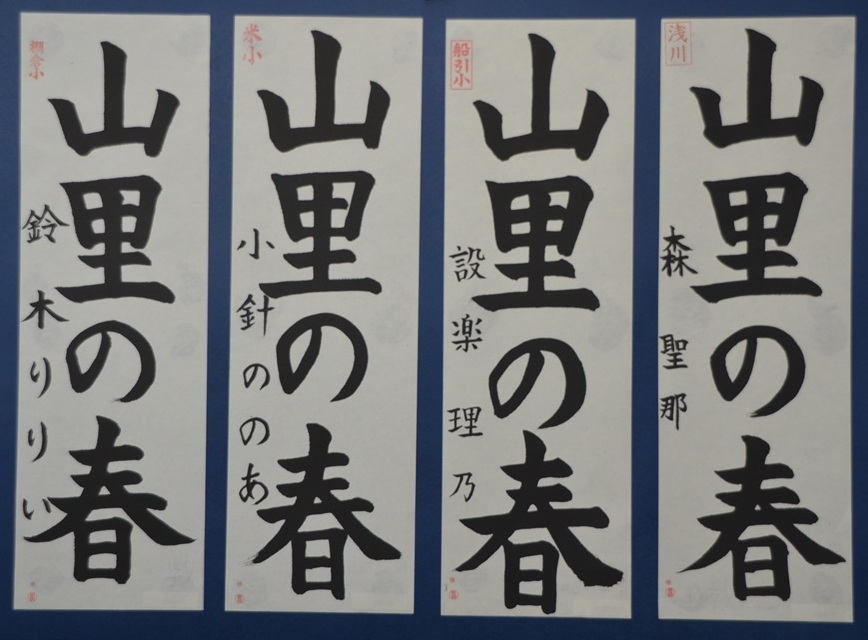 山里の春
浅川
森聖那
山里の春
船引小
設楽理乃
山里の春
米小
小針ののあ
山里の春
棚倉小
鈴木りりい